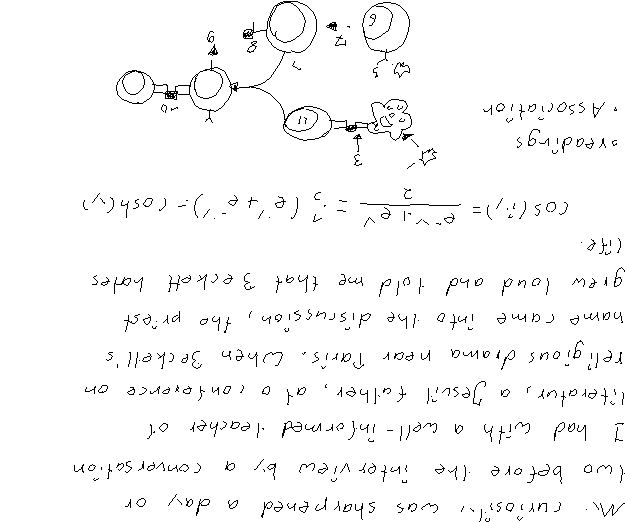 My curiosity was sharpened a day or
two before the interview by a conversation
I had with a well-informed teacher of
literatur, a Jesuit father, at a conference on
religious drama near Paris. When Beckett's
name came into the discussion, the priest
grew loud and told me that Beckett hates
life.
cos(iy) = (e^-y + e^y)/2 = 1/2 (e^y + e^-y) = cosh(y)
• readings
• Association
3
11
10
9
7
8
6